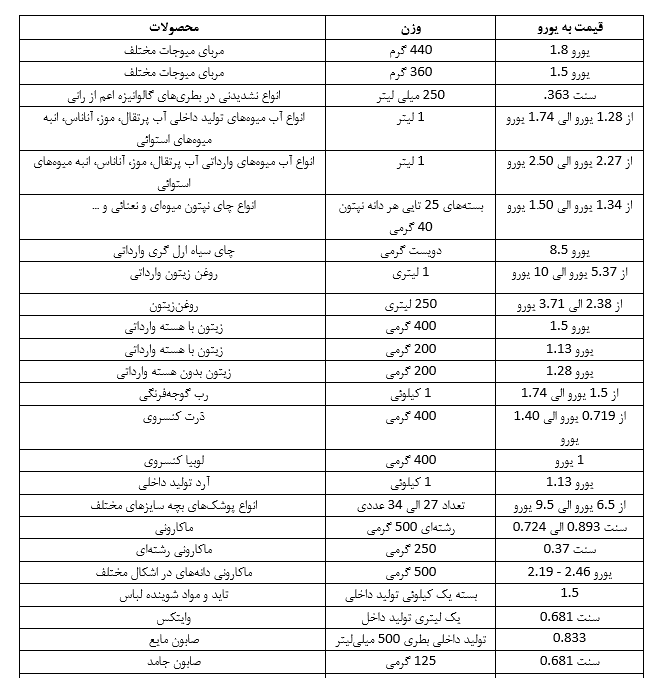 محصولات وزن قیمت به یورو
مربای میوجات مختلف 440 گرم 1.8 یورو
مربای میوجات مختلف 360 گرم 1.5 یورو
انواع نشدیدنی در بطری‌های گالوانیزه اعم از رانی 250 میلی لیتر .363 سنت
انواع آب میوه‌های تولید داخلی آب پرتقال، موز، آناناس، انبه 1 لیتر از 1.28 یورو الی 1.74 یورو
میوه‌های استوائی
انواع آب میوه‌های وارداتی آب پرتقال، موز، آناناس، انبه میوه‌های 1 لیتر از 2.27 یورو الی 2.50 یورو
استوائی
انواع چای نپتون میوه‌ای و نعنائی و ... بسته‌های 25 تایی هر دانه نپتون از 1.34 یورو الی 1.50 یورو
40 گرمی
چای سیاه ارل گری وارداتی دویست گرمی 8.5 یورو
روغن زیتون وارداتی 1 لیتری از 5.37 یورو الی 10 یورو
روغن‌زیتون 250 لیتری از 2.38 الی 3.71 یورو
زیتون با هسته وارداتی 400 گرمی 1.5 یورو
زیتون با هسته وارداتی 200 گرمی 1.13 یورو
زیتون بدون هسته وارداتی 200 گرمی 1.28 یورو
رب گوجه‌فرنگی 1 کیلوئی از 1.5 یورو الی 1.74
ذرت کنسروی 400 گرمی از 0.719 یورو الی 1.40
یورو
لوبیا کنسروی 400 گرمی 1 یورو
آرد تولید داخلی 1 کیلوئی 1.13 یورو
انواع پوشک‌های بچه سایزهای مختلف تعداد 27 الی 34 عددی از 6.5 یورو الی 9.5 یورو
ماکارونی رشته‌ای 500 گرمی سنت 0.893 الی 0.724
ماکارونی رشته‌ای 250 گرمی 0.37 سنت
ماکارونی دانه‌های در اشکال مختلف 500 گرمی یورو 2.46 - 2.19
تاید و مواد شوینده لباس بسته یک کیلوئی تولید داخلی 1.5
وایتکس یک لیتری تولید داخل 0.681 سنت
صابون مایع تولید داخلی بطری 500 میلی‌لیتر 0.833
صابون جامد 125 گرمی 0.681 سنت